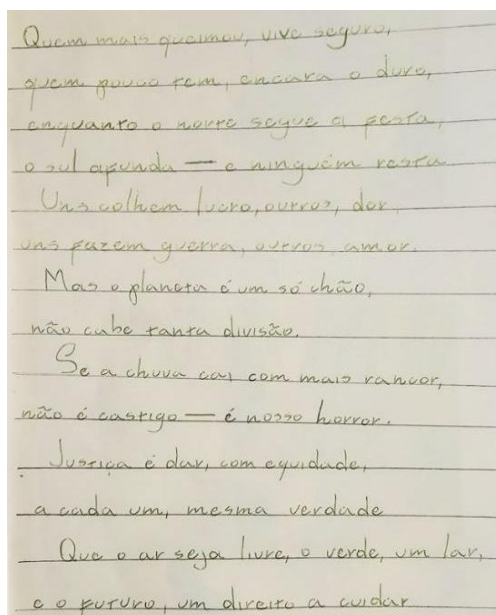 Quem mais queimou, vive seguro,
quem pouco tem, encara o duro,
enquanto o norte segue a festa,
o sul afunda — e ninguém resta
Uns colhem lucro, outros, dor,
uns fazem guerra, outros amor.
Mas o planeta é um só chão,
não cabe tanta divisão.
Se a chuva cai com mais rancor,
não é castigo — é nosso horror.
Justiça é dar, com equidade,
a cada um, mesma verdade
Que o ar seja livre, o verde, um lar,
e o futuro, um direito a cuidar